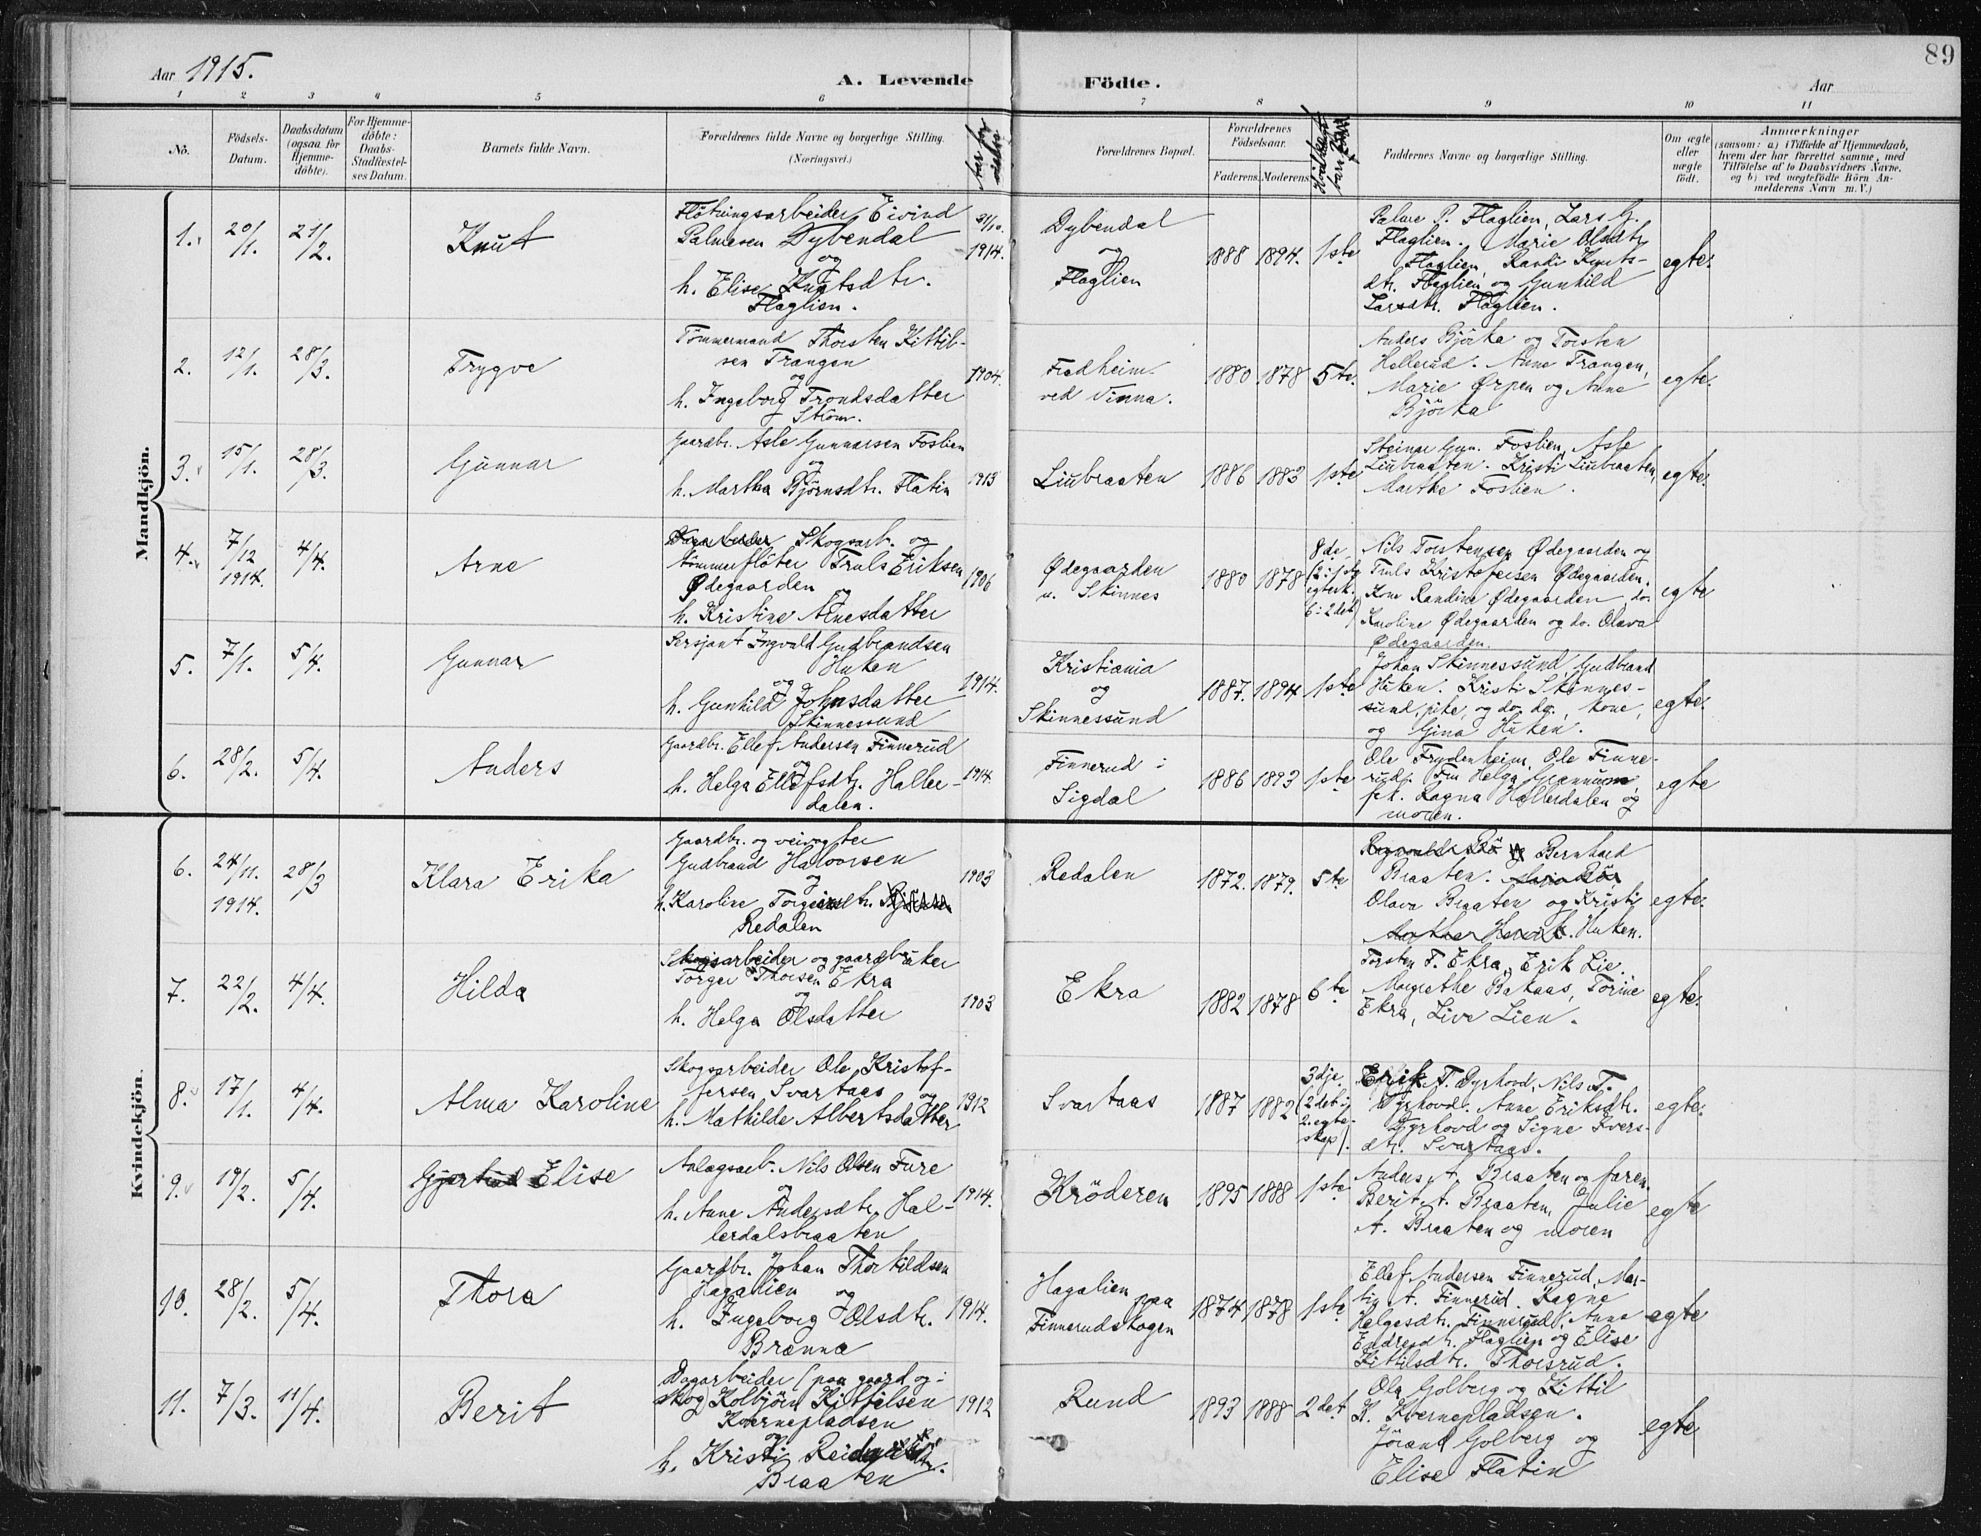 Aar 1915.
A. Levende
Födte.
Aar
89
1 2 3 4 5 6 7 8 9 10 11
No.
Födsels-
Datum.
Daabsdatum
(ogsaa for
Hjemme-
döbte).
For Hjemme-
döbte:
Daabs-
Stadfæstel-
ses Datum.
Barnets fulde Navn.
Forældrenes fulde Navne og borgerlige Stilling.
(Næringsvei.)
Aar for
Forældrenes Bopæl.
Forældrenes
Födselsaar.
Faderens. Moderens.
Faddernes Navne og borgerlige Stilling.
Om ægte
eller
uægte
födt.
Anmærkninger
(saasom: a) i Tilfælde af Hjemmedaab,
hvem der har forrettet samme, med
Tilföielse af to Daabsvidners Navne,
og b) ved uægtefödte Börn An-
melderens Navn m. V.)
Mandkjön.
1.
20/1.
21/2.
Knut
Flötningsarbeider Eivind
Palmesen Dybendal
og
h. Elise Knutsdtr.
Flaglien.
31/10.
1914.
Dybendal
og
Flaglien
1888 1894. 1ste
Palme P. Flaglien, Lars G.
Flaglien. Marie Olsdtr.
Flaglien, Randi Knuts-
dtr. Flaglien og Gunhild
Larsdtr. Flaglien.
egte.
2.
12/1.
28/3.
Trygve
Tömmermand Thorsten Kittil-
sen Trangen
og
h. Ingeborg Trondsdatter
Ström.
1904.
Fredheim
ved Vinna.
1880. 1878 5te.
Anders Björke og Torsten
Hallerud. Anne Trangen,
Marie Ørpen og Anne
Björke
egte.
3.
15/1.
28/3.
Gunnar
Gaardbr. Asle Gunnarsen Foslien
og
h. Martha Björnsdtr. Flatin
1913
Liubraaten
1886 1883 1ste
Steinar Gun. Foslien, Asle
Liubraaten. Kristi Liubraaten,
Marthe Foslien.
egte.
4.
7/12
1914.
4/4.
Arne
Skogsarb. og
tömmerflöter Truls Eriksen
Ødegaarden
og
h. Kristine Arnesdatter
1906
Ødegaarden
u. Skinnes
1880 1878
8de
(2 i 1.
egtesk.
6 i 2det)
Nils Torstensen Ødegaarden og
Truls Kristofersen Ødegaarden.
Kone Randine Ødegaarden, do.
Karoline Ødegaarden og do. Olava
Ødegaarden.
egte
5.
7/1.
5/4.
Gunnar
Sersjant Ingvald Gudbrandsen
Huken
og
h. Gunhild Johnsdatter
Skinnessund
1914.
Kristiania
og
Skinnessund
1887. 1894 1ste
Johan Skinnessund, Gudbrand
Huken. Kristi Skinnes-
sund, pike, og do. do., kone,
og Gina Huken.
egte.
6.
28/2.
5/4.
Anders
Gaardbr. Ellef Andersen Finnerud
og
h. Helga Ellefsdtr. Haller-
dalen.
1914.
Finnerud i
Sigdal
1886 1893 1ste
Ole Frydenheim, Ole Finne-
rud. Fru Helga Grønnum,
frk. Ragna Hallerdalen og
moren.
egte
Kvindekjön.
6.
24/11.
1914.
28/3
Klara Erika
Gaardbr. og veivogter
Gudbrand Halvorsen
og
h. Karoline
Redalen
1903
Redalen
1872. 1879. 5te
Bernhard
Braaten.
Olava Braaten og Kristi
Huken.
egte.
7.
22/2.
4/4.
Hilda
Skogsarbeider og gaardbruker
Torger Thorsen Ekra
og
h. Helga Olsdatter
1903
Ekra
1882 1878 6te
Torsten T. Ekra, Erik Lie.
Margrethe Bakaas, Torine
Ekra, Live Lien.
egte.
8.
17/1.
4/4.
Alma Karoline
Skogsarbeider Ole Kristof-
fersen Svartaas og
h. Mathilde Albertsdatter
1912
Svartaas
1887 1882
3dje
(2det i
2. egte-
skap).
Erik T. Dyrhovd, Nils T.
Dyrhovd. Anne Eriksdtr.
Dyrhovd og Signe Ivers-
dtr. Svartaas.
egte.
9.
19/2.
5/4.
Elise
Anlægsarb. Nils Olsen Fure
og
h. Anne Andersdtr. Hal-
lerdalsbraaten
1914.
Kröderen
1895 1888 1ste
Anders A. Braaten og faren.
Berit A. Braaten, Julie
A. Braaten og moren
egte
10.
28/2.
5/4.
Thora
Gaardbr. Johan Thorkildsen
Hagalien og
h. Ingeborg Olsdtr.
Brænna
1914.
Hagalien paa
Finnerudskogen
1874 1878 1ste
Ellef Andersen Finnerud, Mar-
tin A. Finnerud. Ragne
Helgesdtr. Finnerud, Anne
Endresdtr. Flaglien og Elise
Kittilsdtr. Thorsrud.
egte
11.
7/3.
11/4.
Berit
Dagarbeider (paa gaard og i
skog Kolbjörn Kittilsen
Kvernepladsen
og
h. Kristi
Braaten
1912
Rund
1893 1888 2det
Ola Golberg og Kittil
K. Kvernepladsen.
Jörand Golberg og
Elise Flatin
egte